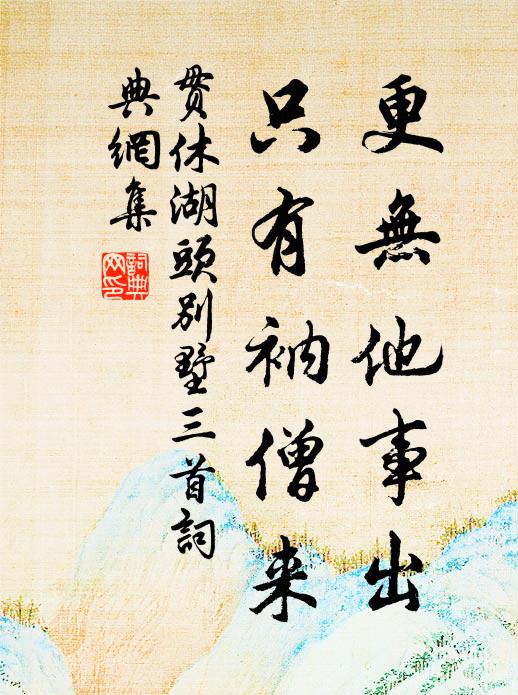 更無他事出
只有衲僧来
貫休湖頭別墅三首詞
典網集
詞典
网印